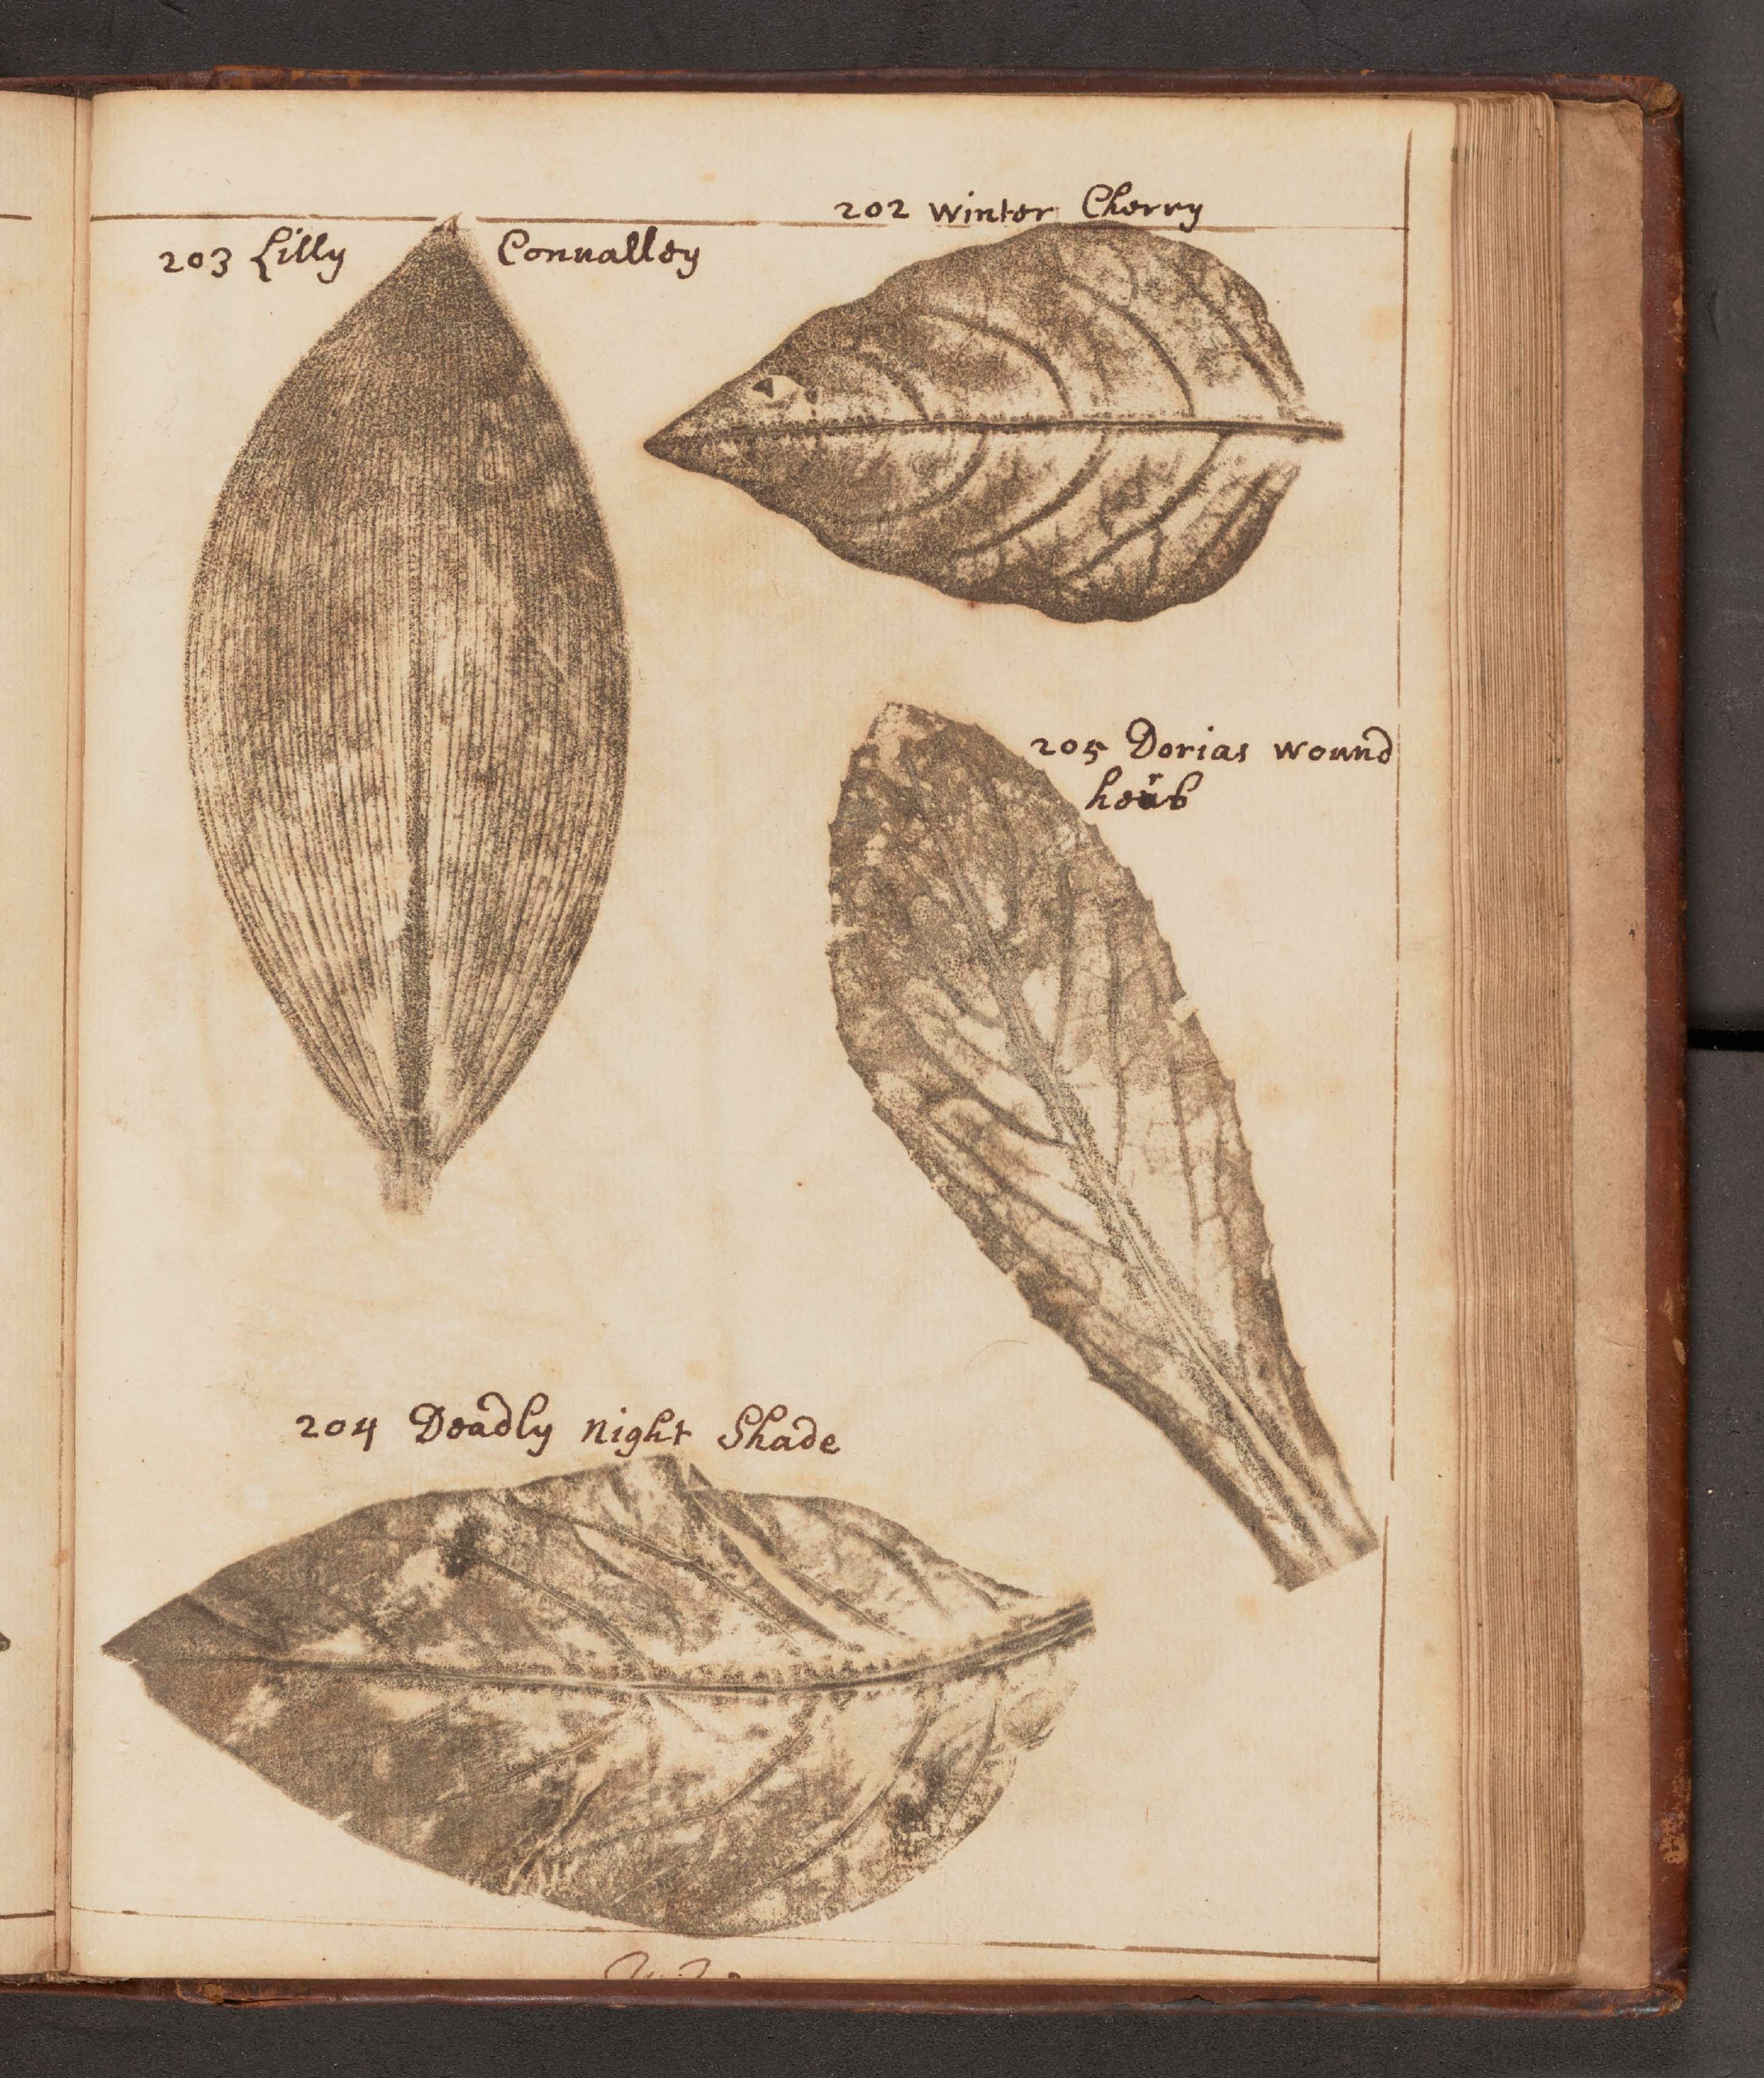 202 winter Cherry
203 Lilly Convalley
205 Dorias wound
herb
204 Deadly night Shade